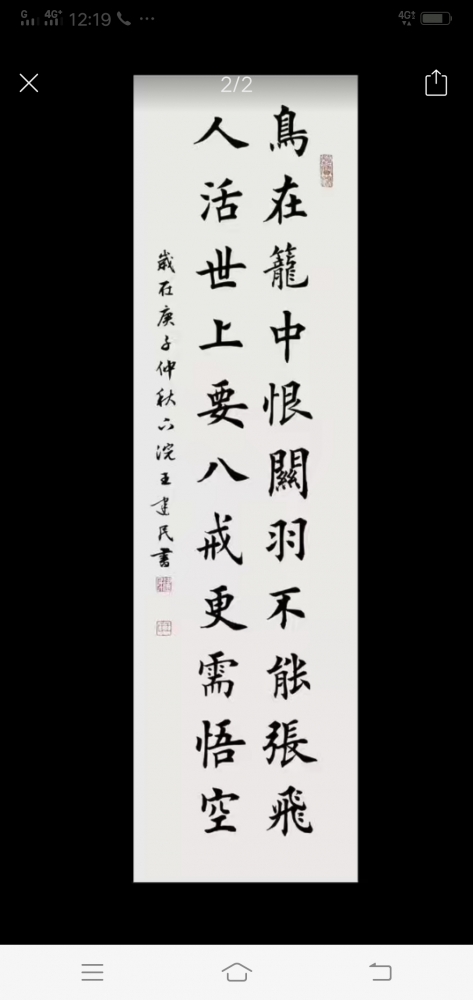 G 4G+ 12:19 ... 4G↕
2/2
鳥在籠中恨關羽不能張飛
人活世上要八戒更需悟空
歲在庚子仲秋六浣王建民書